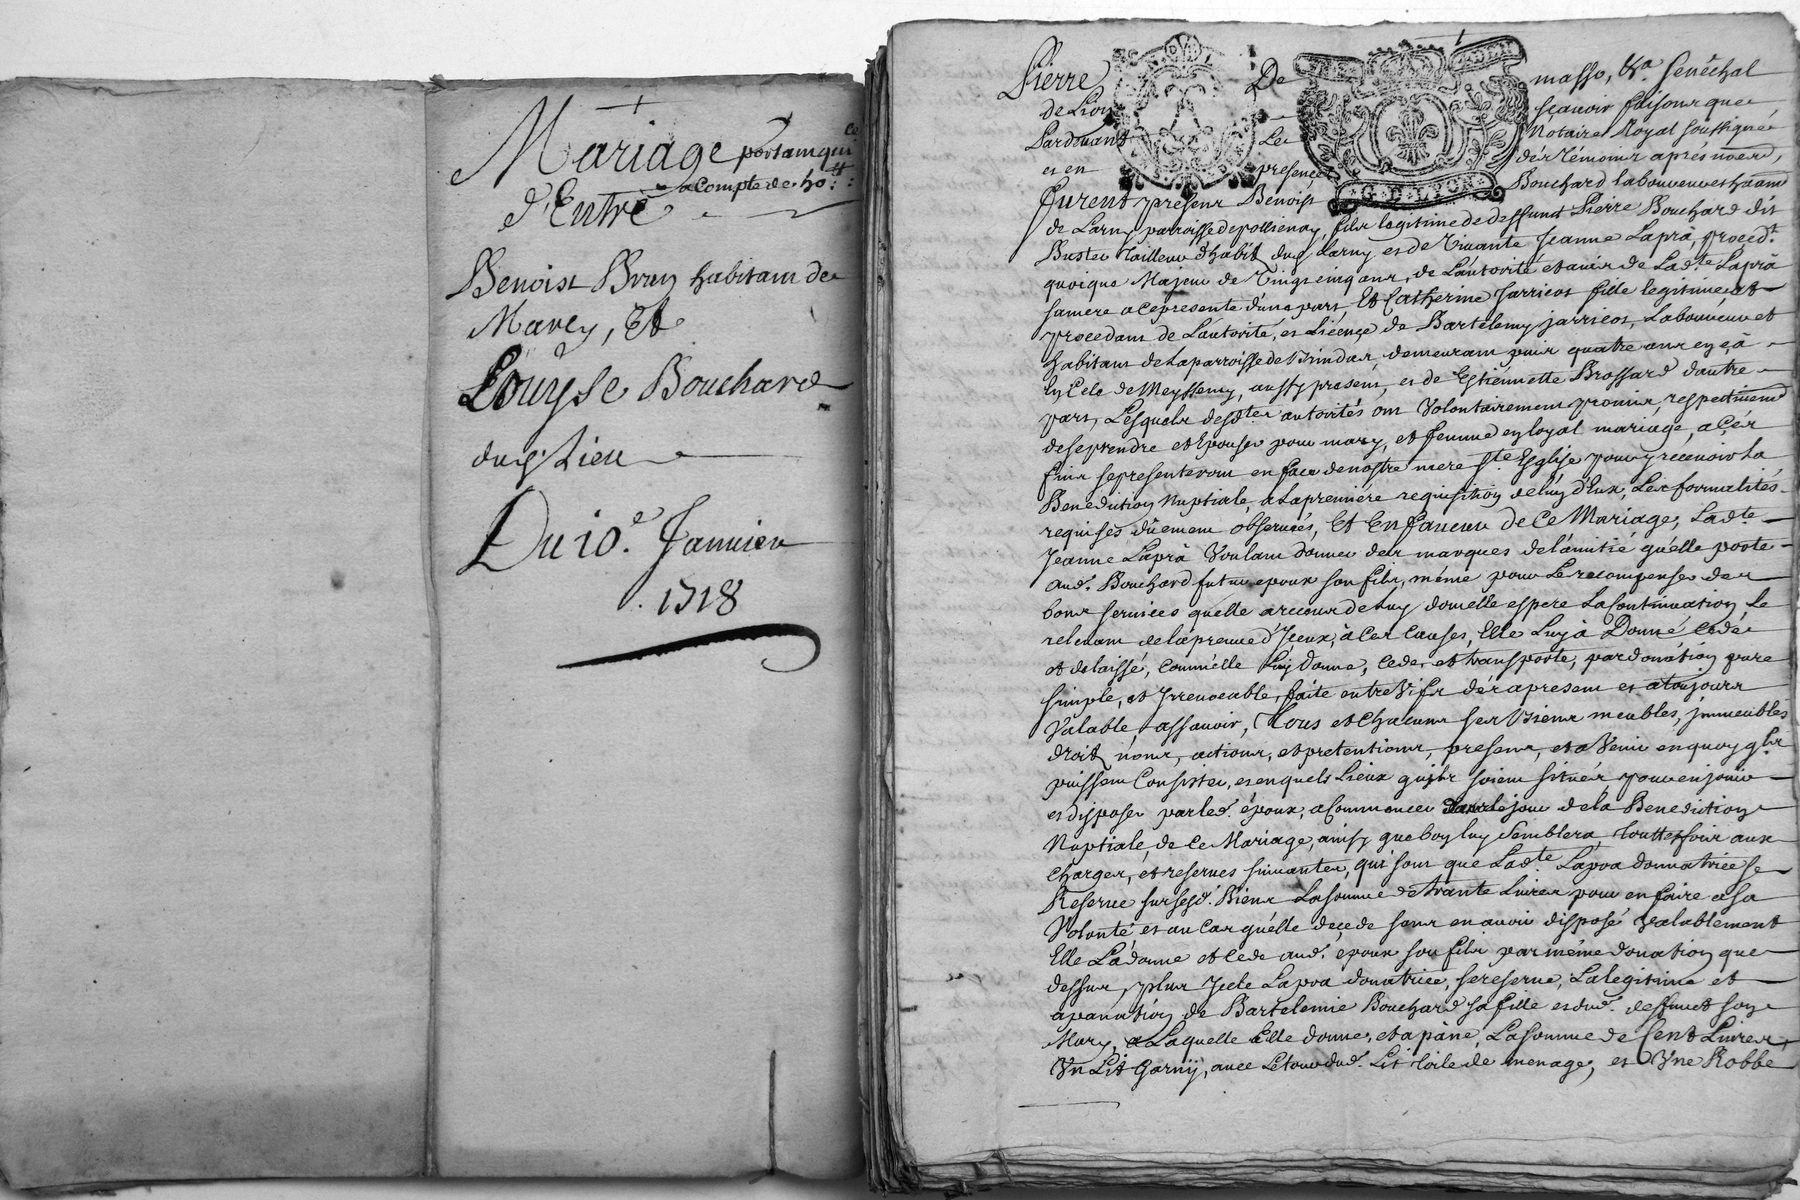 Mariage portant qui
ce
a compte de 50 ₶:
d'Entre
Benoist Bray habitant de
Marcy, Et
Louyse Bouchard
dud. Lieu
Du 10e. Janvier
1718
Pierre De masso, &a. Senéchal
de Lion sçavoir faisons que
Pardevant Le Notaire Royal soussigné
et en presence des témoins aprés només,
G. D. LYON
furent presens Benoist Bouchard laboureur habitant
de Larny parroisse de pollienay, fils legitime de deffunt Pierre Bouchard dit
Buster tailleur d'habit dud. Larny et de vivante Jeanne Laprà, proced.t
quoique Majeur de vingt cinq ans, de L'autorité et avis de Lad.te Laprà
sa mere a ce presente d'une part, Et Catherine Jarricot fille legitime et
procedant de L'autorité, et Licençe de Bartelemy jarricot, Laboureur et
habitant de La parroisse de Brindas demeurant puis quatre ans en çà à
de Meyssemy, aussy present, et de Estiennette Brossard d'autre
part, Lesquels desd.tes autorités ont volontairement promis respectivement
de se prendre et Epouser pour mary, et femme en loyal mariage, a çés
fins se presenteront en face de nostre mere S.te Eglise pour y recevoir La
Benediction Nuptiale, à La premiére requisition de L'un d'Eux, Les formalités
requises dûement observées, Et En faveur de Ce Mariage, Lad.te
Jeanne Laprà voulant donner des marques de L'amitié qu'elle porte
aud. Bouchard futur epoux son fils, même pour Le recompenser des
bons services qu'elle a reçeus de Luy dont elle espere La Continuation, Le
relevant de La preuve d'Jceux, à Ces Causes, Elle Luy à Donné, Cedé
et delaissé, comm'elle Luy donne, Cede, et transporte, par donation pure
simple, et Jrrevocable, faite entre vifs dés a present et a toujours
Valable, assavoir, Tous et Chacuns ses Biens meubles, jmmeubles
droits, noms, actions, et pretentions, presens, et a venir en quoy q'ls
puissent Consister, et en quels Lieux qu'ils soient situés pour en jouir
et disposer par led. époux, a Commencer dans le jour de la Benediction
Nuptiale, de Ce Mariage, ainsy que bon luy semblera, toutesfois aux
charges, et reserves suivantes, qui sont que Lad.te Lapra donnatrice se
Reserve sur sesd. Biens La somme de trante Livres pour en faire a sa
Volonté et au Cas qu'élle deçede sans en avoir disposé valablement
Elle La donne et Cede aud. époux son fils par même donation que
dessus, plus Jcele Lapra donatrice, se reserve, La legitime et
apanation de Bartelemie Bouchard sa fille et dud. deffunct son
Mary, a Laquelle Elle donne, et apâne, La somme de Cent Livres,
Vn Lit Garny, avec Le tour dud. Lit toile de menage, et Vne Robbe